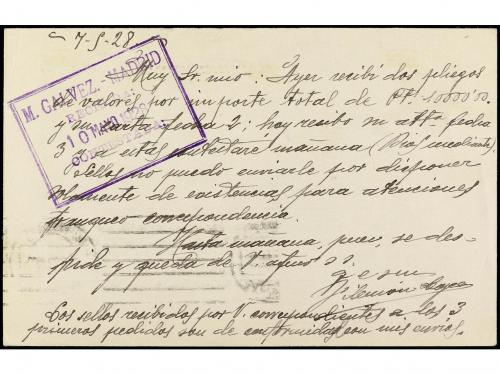 7-5-28
M. GALVEZ.-MADRID
RECIBIDA
10 MAYO 1928
CONTESTADA
Muy Sr. mio: Ayer recibí dos pliegos
de valores por importe total de Pts. 10000'00.
y su carta fecha 2; hoy recibo su atta. fecha
3 a estas contestare mañana (Dios mediante).
Sellos no puedo enviarle por disponer
solamente de existencias para atenciones
franqueo correspondencia.
Hasta mañana, pues, se des-
pide y queda de V. atmo ss.
q e s m
Filemón
Los sellos recibidos por V. correspondientes a los 3
primeros pedidos son de conformidad con mis envios.